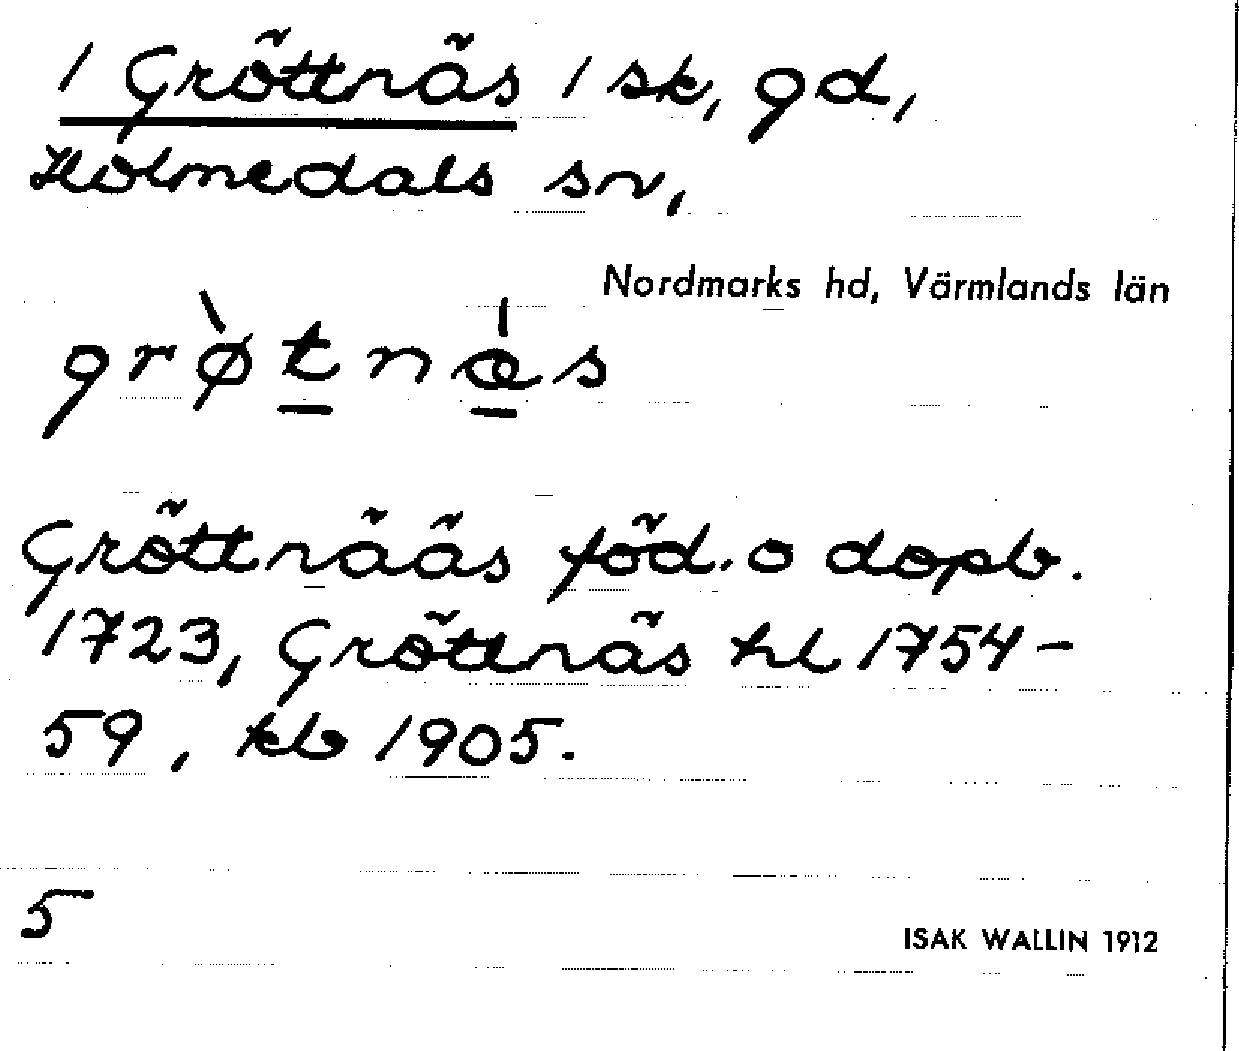 / Gröttnäs / sk, gd,
Holmedals sn,
Nordmarks hd, Värmlands län
grø̀tnǽs
Gröttnääs föd. o dopb.
1723, Gröttnäs hl 1754-
59, kb 1905.
5
ISAK WALLIN 1912